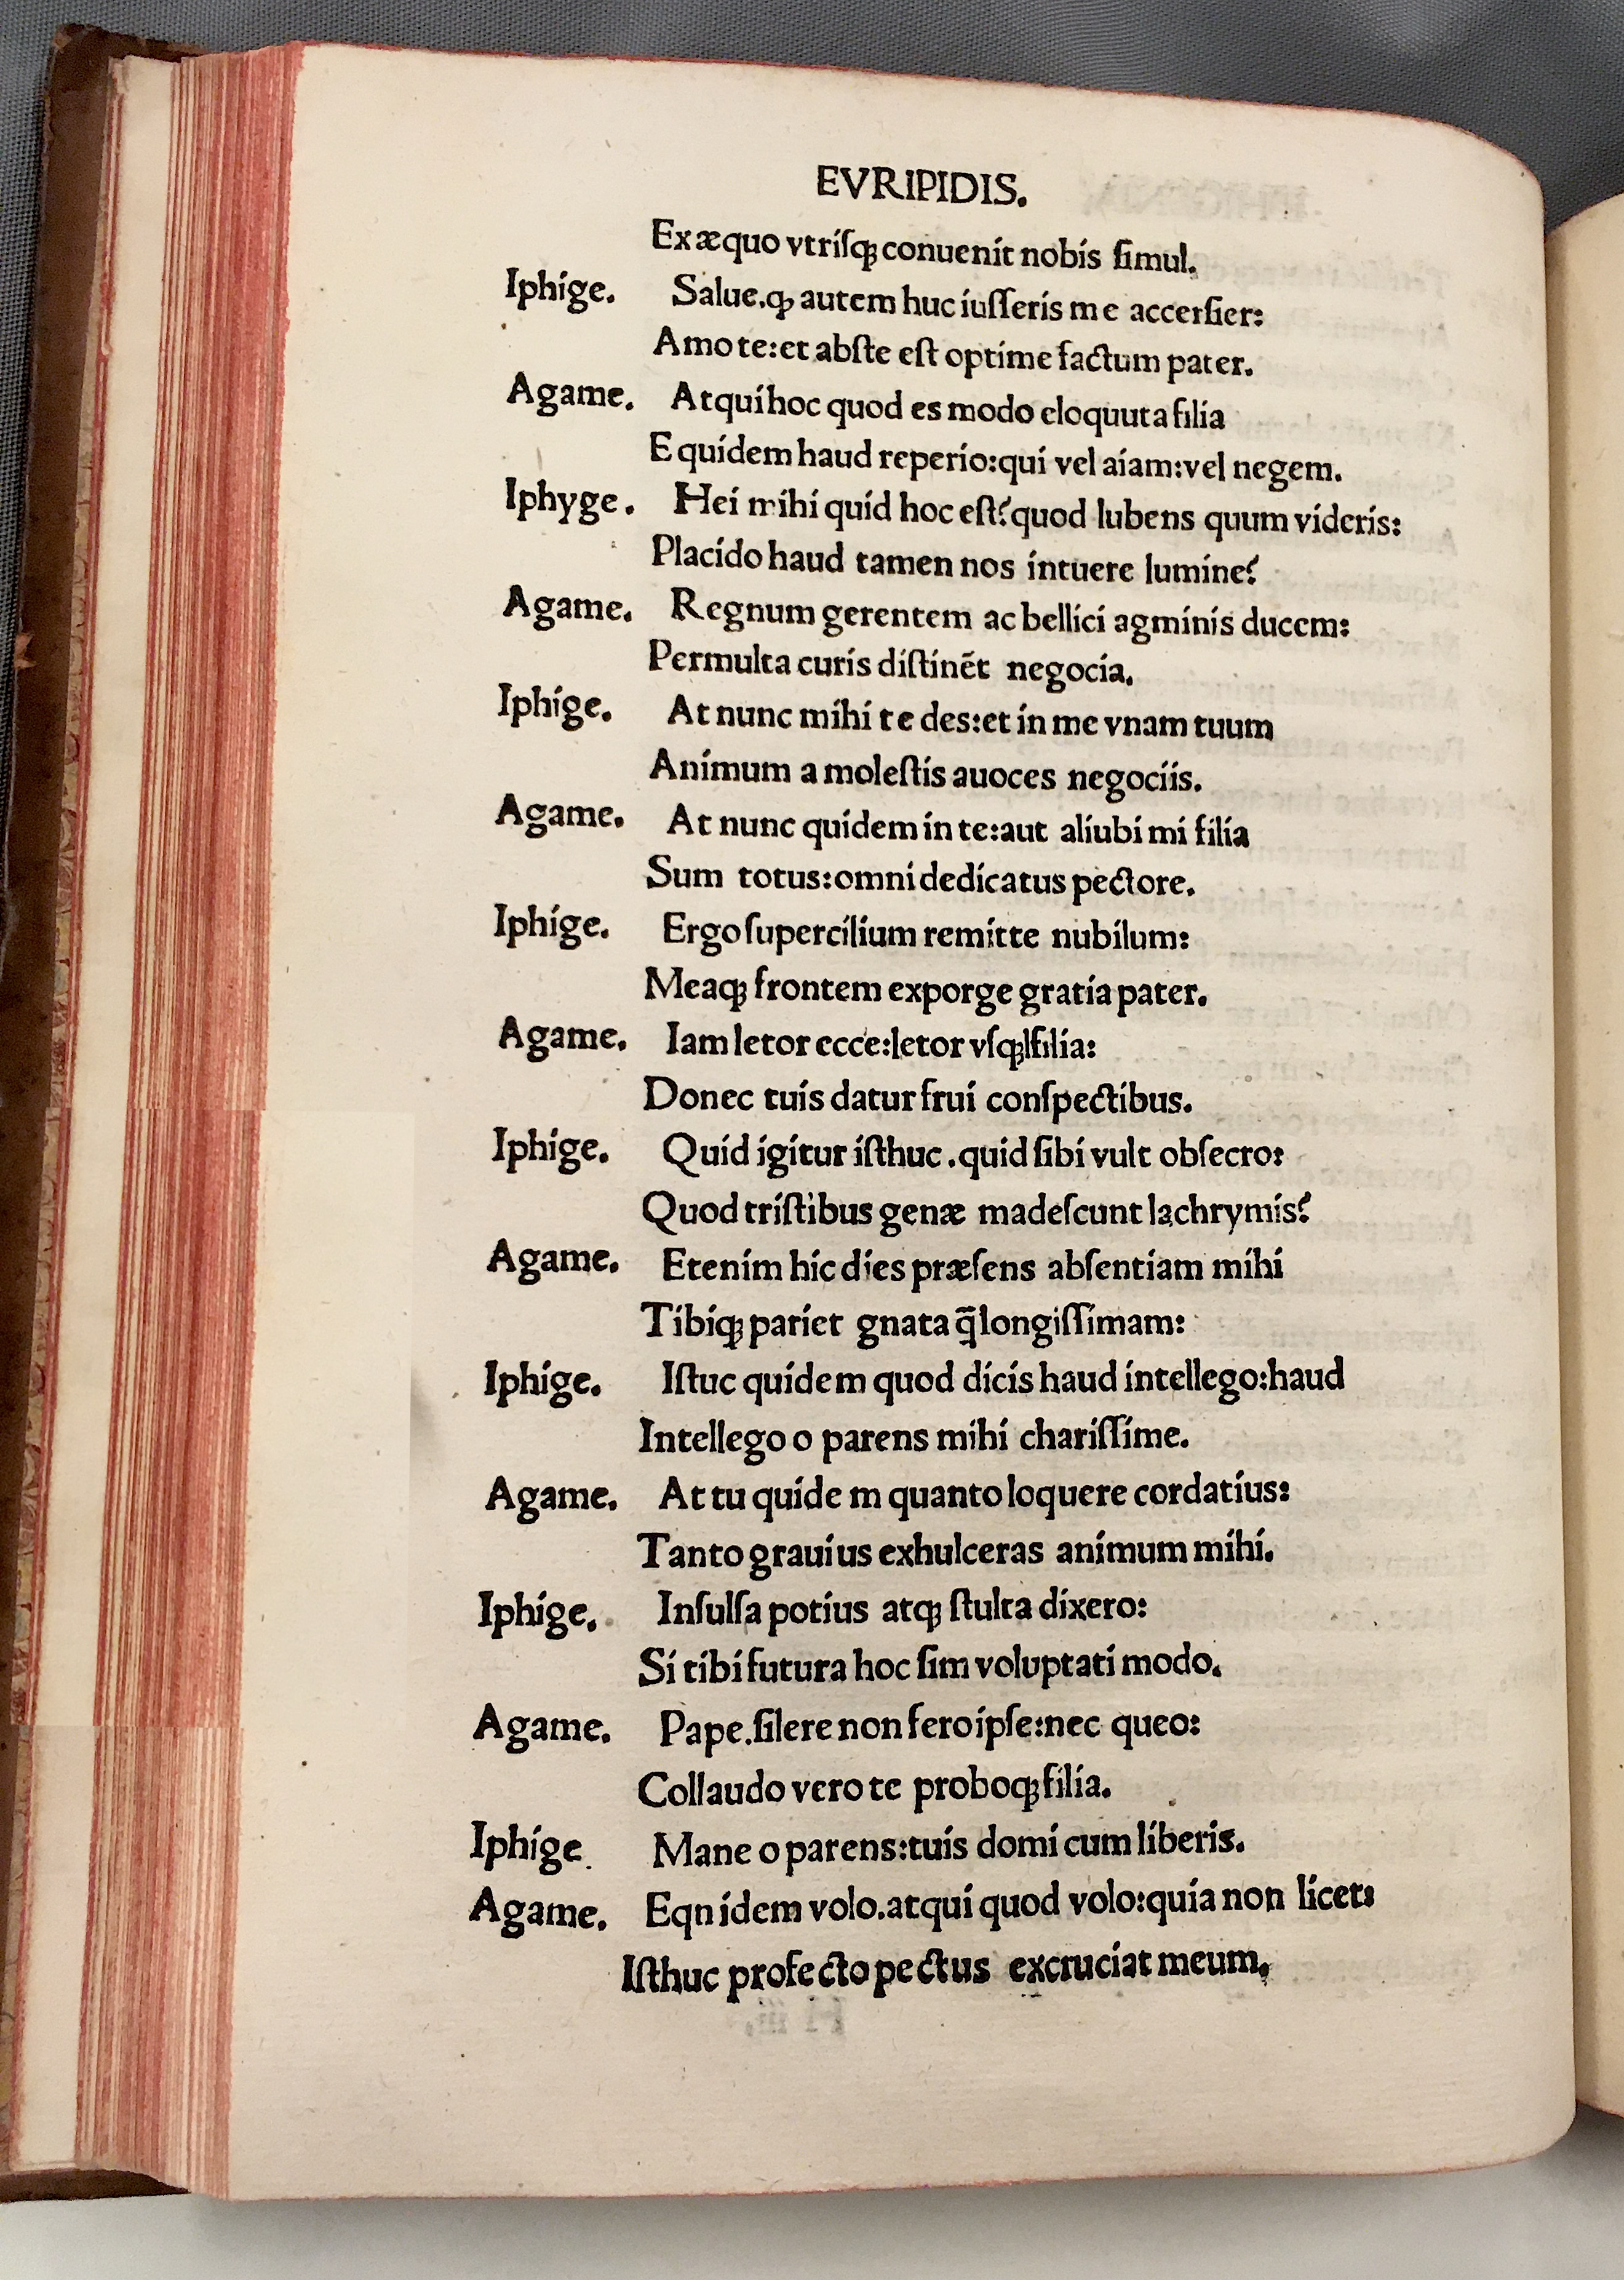 EVRIPIDIS.
Ex æquo vtriſqꝫ conuenit nobis ſimul.
Iphige. Salue.ꝙ autem huc iuſſeris me accerſier:
Amo te:et abſte eſt optime factum pater.
Agame. Atqui hoc quod es modo eloquuta filia
Equidem haud reperio:qui vel aiam:vel negem.
Iphyge. Hei mihi quid hoc eſt?quod lubens quum videris:
Placido haud tamen nos intuere lumine?
Agame. Regnum gerentem ac bellici agminis ducem:
Permulta curis diſtinēt negocia.
Iphige. At nunc mihi te des:et in me vnam tuum
Animum a moleſtis auoces negociis.
Agame. At nunc quidem in te:aut aliubi mi filia
Sum totus:omni dedicatus pectore.
Iphige. Ergo ſupercilium remitte nubilum:
Meaqꝫ frontem exporge gratia pater.
Agame. Iam letor ecce:letor vſqꝫ filia:
Donec tuis datur frui conſpectibus.
Iphige. Quid igitur iſthuc.quid ſibi vult obſecro:
Quod triſtibus genæ madeſcunt lachrymis?
Agame. Etenim hic dies præſens abſentiam mihi
Tibiqꝫ pariet gnata q̄longiſſimam:
Iphige. Iſtuc quidem quod dicis haud intellego:haud
Intellego o parens mihi chariſſime.
Agame. At tu quidem quanto loquere cordatius:
Tanto grauius exhulceras animum mihi.
Iphige. Inſulſa potius atqꝫ ſtulta dixero:
Si tibi futura hoc ſim voluptati modo.
Agame. Pape.ſilere non fero ipſe:nec queo:
Collaudo vero te proboqꝫ filia.
Iphige. Mane o parens:tuis domi cum liberis.
Agame. Eqnidem volo.atqui quod volo:quia non licet:
Iſthuc profecto pectus excruciat meum.